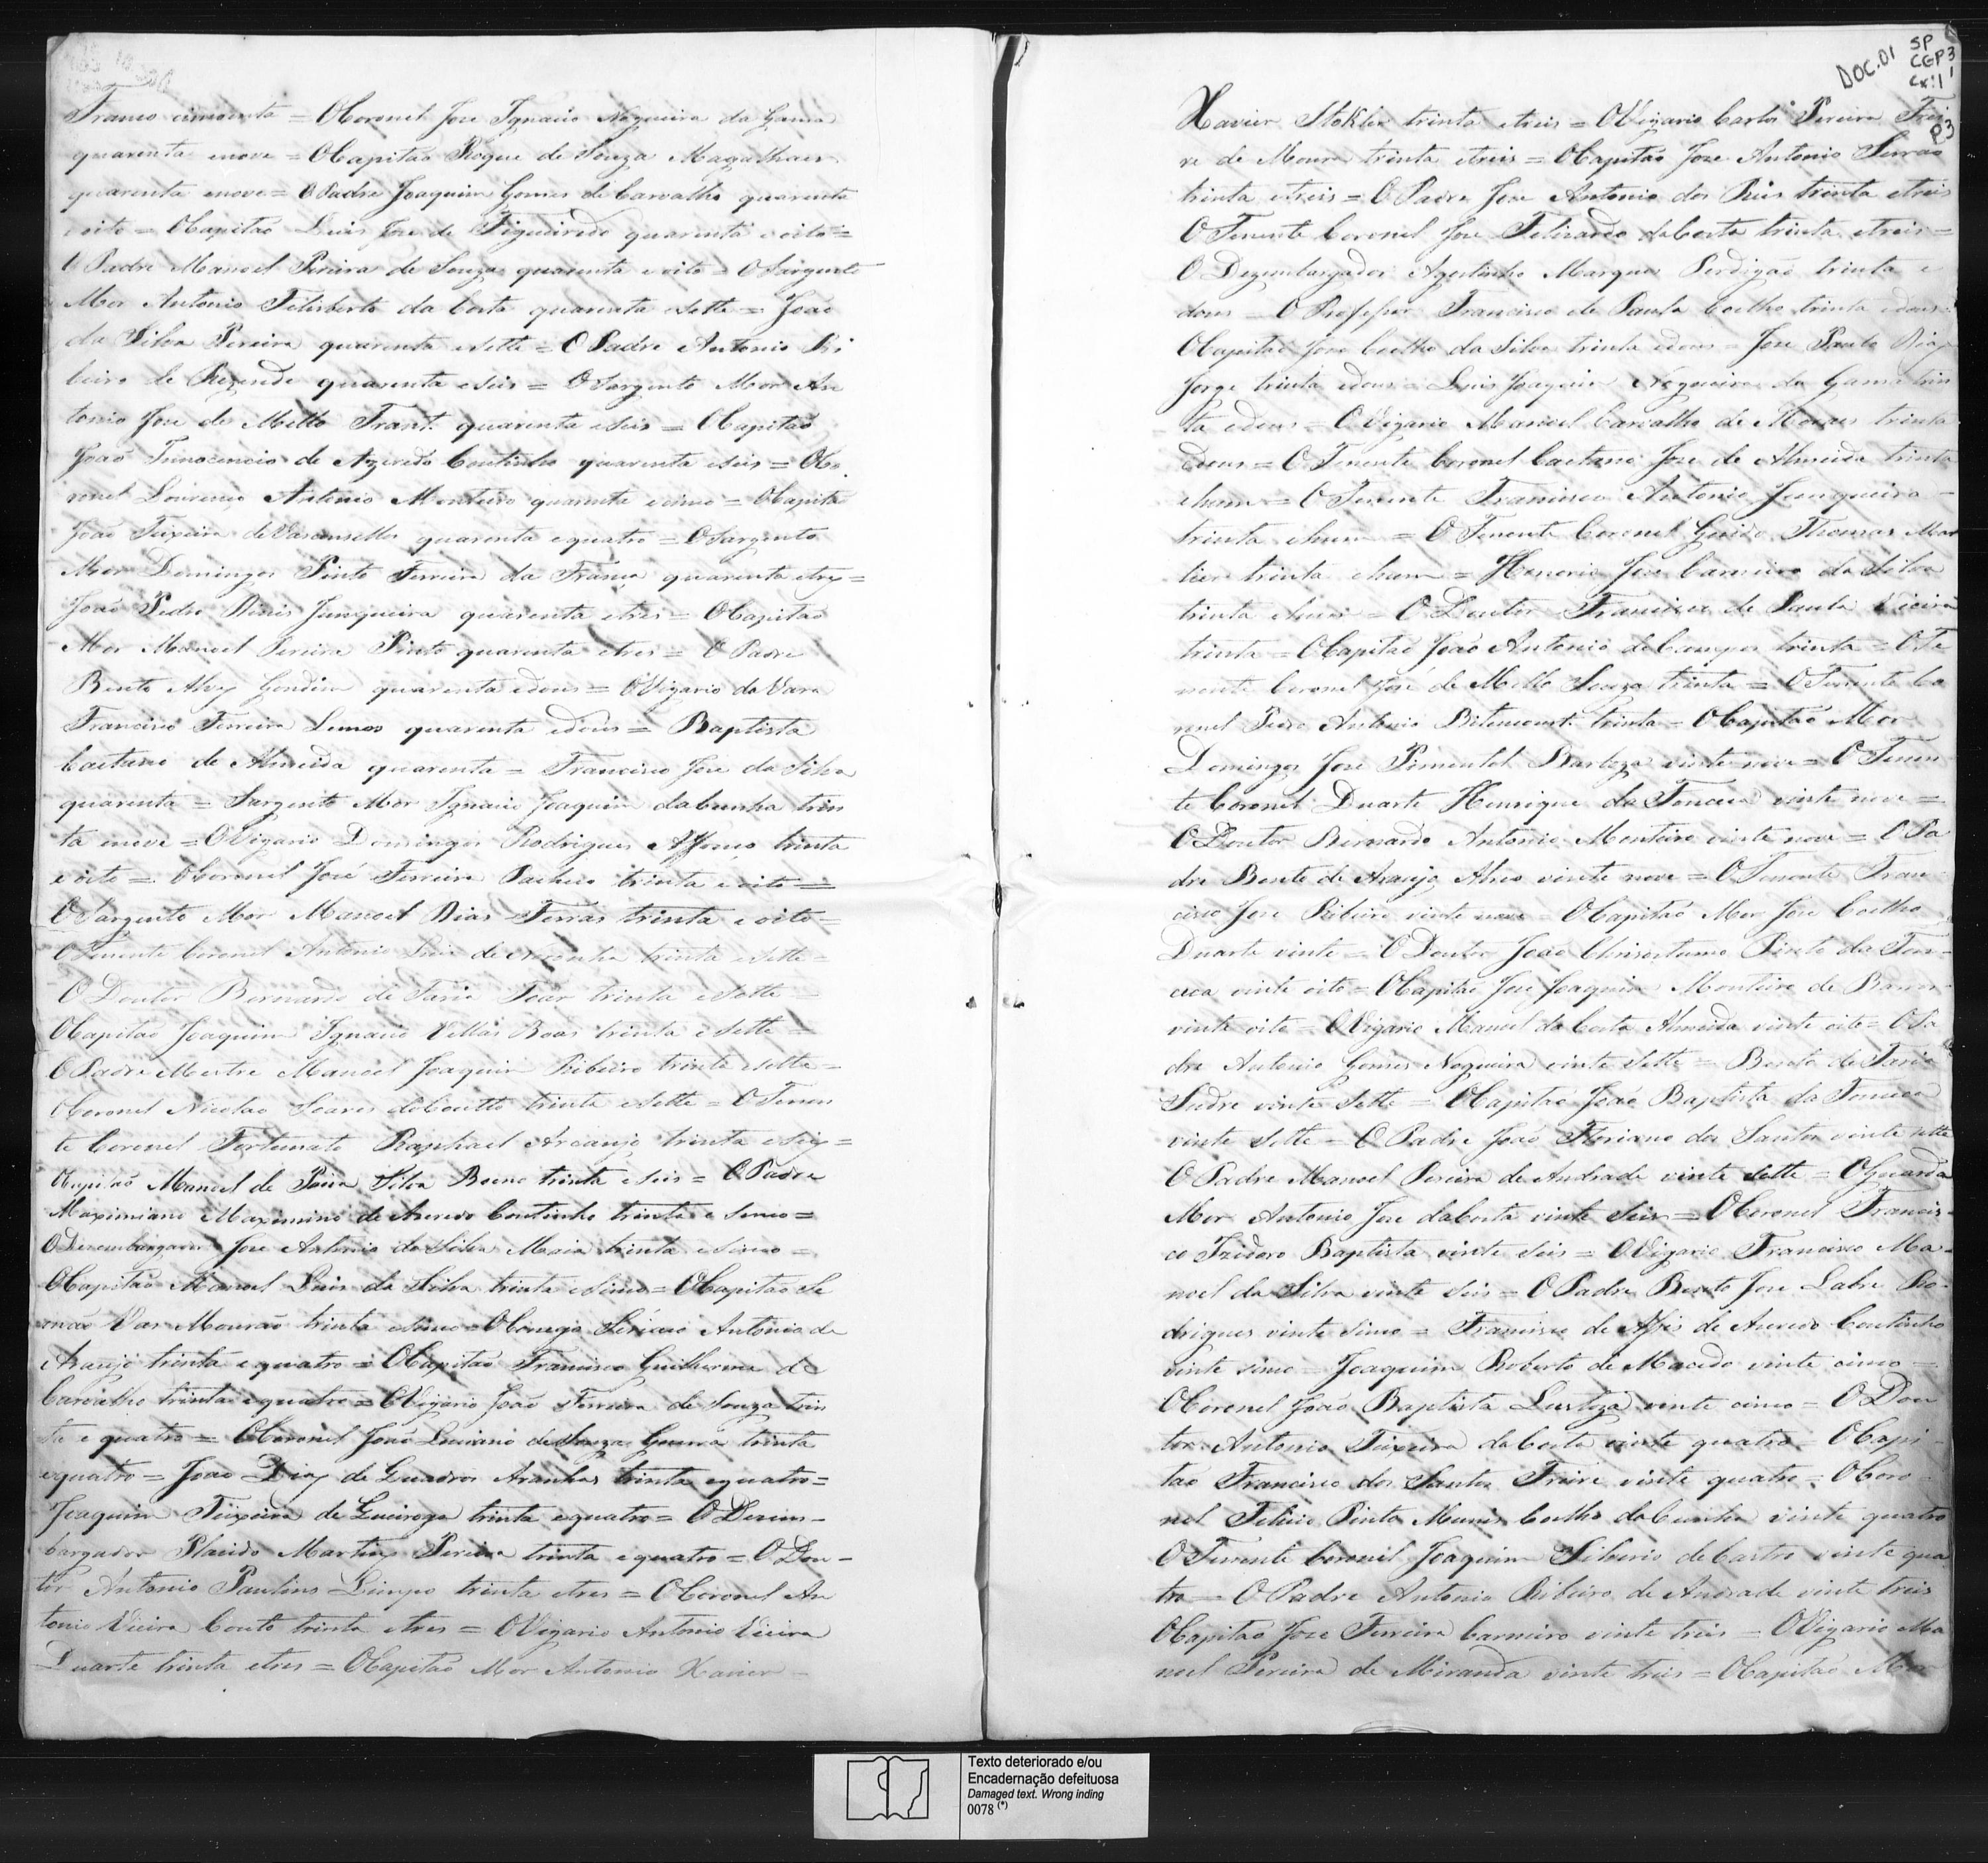 Franco cincoenta = O Coronel Joze Ignacio Nogueira da Gama
quarenta enove = O Capitaõ Roque de Souza Magalhaes
quarenta enove = O Padre Joaquim Gomes de Carvalho quarenta
e oito = O Capitaõ Luis Joze de Figueiredo quarenta e oito =
O Padre Manoel Pereira de Souza quarenta e oito = O Sargento
Mor Antonio Feliberto da Costa quarenta esette = Joaõ
da Silva Pereira quarenta esette = O Padre Antonio Ri
beiro de Rezende quarenta eseis = O Sargento Mor An
tonio Joze de Mello Trant. quarenta eseis = O Capitaõ
Joaõ Innocencio de Azeredo Coutinho quarenta eseis = O Co
ronel Lourenço Antonio Monteiro quarenta ecinco = O Capitaõ
Joaõ Teixeira de Vasconsellos quarenta equatro = O Sargento
Mor Domingos Pinto Ferreira da França quarenta etrez =
Joaõ Pedro Dinis Junqueira quarenta etres = O Capitaõ
Mor Manoel Pereira Pinto quarenta etres = O Padre
Bento Alvz Gondim quarenta edous = O Vigario da Vara
Francisco Ferreira Lemos quarenta edous = Baptista
Caetano de Almeida quarenta = Francisco Joze da Silva
quarenta = Sargento Mor Ignacio Joaquim da Cunha trin
ta enove = O Vigario Domingos Rodrigues Affonço trinta
e oito = O Coronel José Ferreira Pacheco trinta e oito =
O Sargento Mor Manoel Dias Ferras trinta e oito =
O Tenente Coronel Antonio Luis de Noronha trinta esette =
O Doutor Bernardo de Faria trinta esette =
O Capitaõ Joaquim Ignacio Villas Boas trinta e sette =
O Padre Mestre Manoel Joaquim Ribeiro trinta esette =
O Coronel Nicolao Soares do Coutto trinta esette = O Tenen
te Coronel Fortunato Raphael Arcanjo trinta eseiz =
O Capitaõ Manoel de Paiva Silva Bueno trinta eseis = O Padre
Maximiano Maximino de Azeredo Coutinho trinta e sinco =
O Desembargador Joze Antonio da Silva Maia trinta esinco =
O Capitaõ Manoel Luis da Silva trinta esinco = O Capitaõ Fe
rnaõ Vas Mouraõ trinta esinco = O Conego Antonio de
Araujo trinta e quatro = O Capitaõ Francisco Guilherme de
Carvalho trinta e quatro = O Vigario Joaõ Ferreira de Souza trin
ta e quatro = O Coronel José Luciano de Souza Guerra trinta
equatro = Joaõ Diaz de Quadros Aranha trinta equatro =
Joaquim Teixeira de Queiroga trinta equatro = O Desem-
bargador Placido Martins Pereira trinta e quatro = O Dou-
tor Antonio Paulino Limpo trinta etres = O Coronel An
tonio Vieira Couto trinta etres = O Vigario Antonio Vieira
Duarte trinta etres = O Capitaõ Mor Antonio Xavier =
DOC.01 SP
CGP3
Cx:11
P3
Xavier Stokler trinta etreis = O Vigario Carlos Pereira Frei
re de Moura trinta etreis = O Capitaõ Joze Antonio Serraõ
trinta etreis = O Padre Joze Antonio dos Reis trinta etreis
O Tenente Coronel Joze Felizardo da Costa trinta etreis =
O Dezembargador Agostinho Marques Perdigaõ trinta e
dous = O Professor Francisco de Paula Coelho trinta edous =
O Capitaõ Joze Coelho da Silva trinta edous = Joze Paulo Diaz
Jorge trinta edous = Luis Joaquim Nogueira da Gama trin
ta edous = O Vigario Manoel Carvalho de Moraes trinta
edous = O Tenente Coronel Caetano Joze de Almeida trinta
ehum = O Tenente Francisco Antonio Junqueira =
trinta ehum = O Tenente Coronel Guido Thomas Mar
lier trinta ehum = Honorio Joze Carneiro da Silva
trinta ehum = O Doutor Francisco de Paula Vieira
trinta = O Capitaõ Joaõ Antonio de Campos trinta = O Te
nente Coronel José de Mello Souza trinta = O Tenente Co
ronel Pedro Antonio Bitencourt. trinta = O Capitaõ Mor
Domingos Joze Pimentel Barboza vinte nove = O Tenen
te Coronel Duarte Henrique da Fonceca vinte nove =
O Doutor Bernardo Antonio Monteiro vinte nove = O Pa
dre Bento de Araujo Abreo vinte nove = O Tenente Fran
cisco Joze Ribeiro vinte nove = O Capitaõ Mor Joze Coelho
Duarte vinte = O Doutor Joaõ Chrisostumo Pinto da Fon-
ceca vinte oito = O Capitaõ Joze Joaquim Monteiro de Barros
vinte oito = O Vigario Manoel da Costa Almeida vinte oito = O Pa
dre Antonio Gomes Nogueira vinte sette = Bento de Faria
Sudre vinte sette = O Capitaõ Joaõ Baptista da Fonceca
vinte sette = O Padre Joaõ Floriano dos Santos vinte sette
O Padre Manoel Pereira de Andrade vinte sette = O Guarda
Mor Antonio Joze da Costa vinte seis = O Coronel Francis-
co Izidoro Baptista vinte seis = O Vigario Francisco Ma-
noel da Silva vinte seis = O Padre Bento Joze Labre Ro-
drigues vinte sinco = Francisco de Assis de Azeredo Coutinho
vinte sinco = Joaquim Roberto de Macedo vinte cinco =
O Coronel Joaõ Baptista Lustoza vinte cinco = O Dou
tor Antonio Teixeira da Costa vinte quatro = O Capi-
taõ Francisco dos Santos Freire vinte quatro = O Coro-
nel Felicio Pinto Munis Coelho da Cunha vinte quatro
O Tenente Coronel Joaquim Silverio de Castro vinte qua
tro = O Padre Antonio Ribeiro de Andrade vinte treis
O Capitaõ Joze Ferreira Carneiro vinte treis = O Vigario Ma
noel Pereira de Miranda vinte treis = O Capitaõ Mor
Texto deteriorado e/ou
Encadernação defeituosa
Damaged text. Wrong inding
0078 (*)